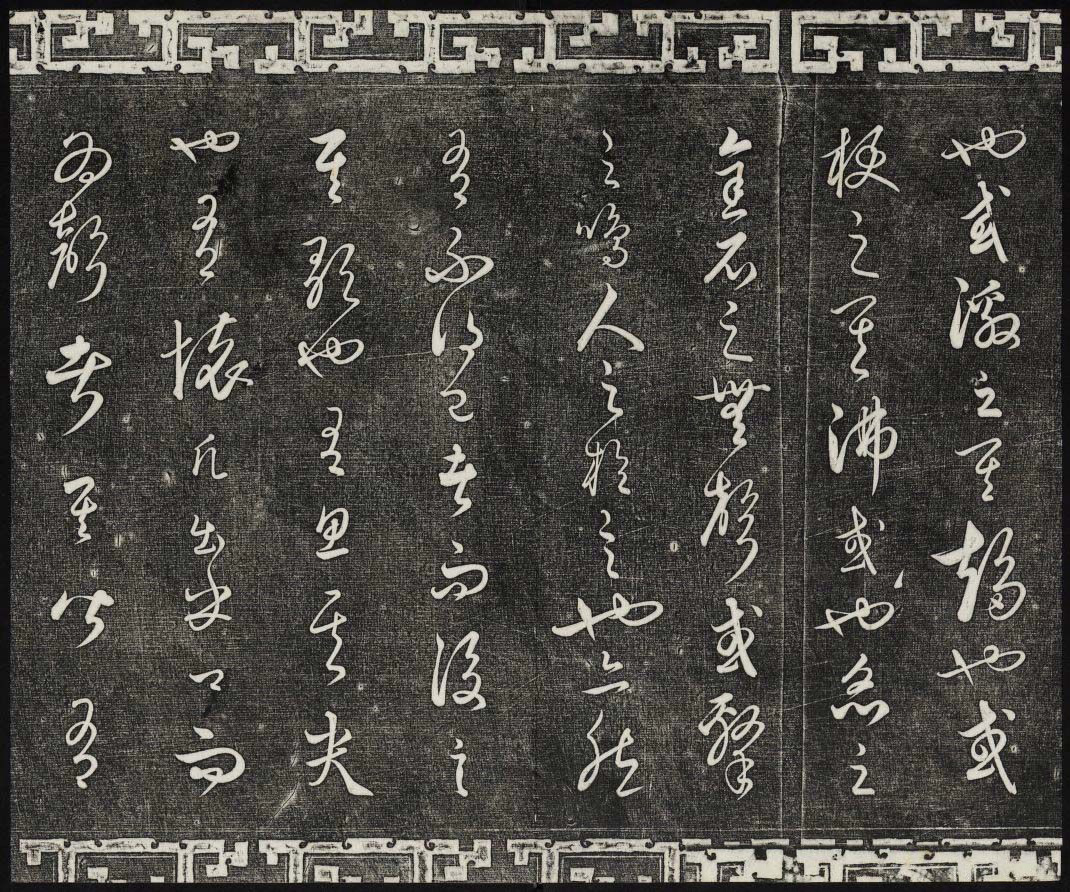 也或激之其趨也或
梗之其沸或也炙之
金石之無聲或擊
之鳴人之於言也亦然
有不得已者而後言
其歌也有思其哭
也有懷凡出乎口而
為聲者其皆有